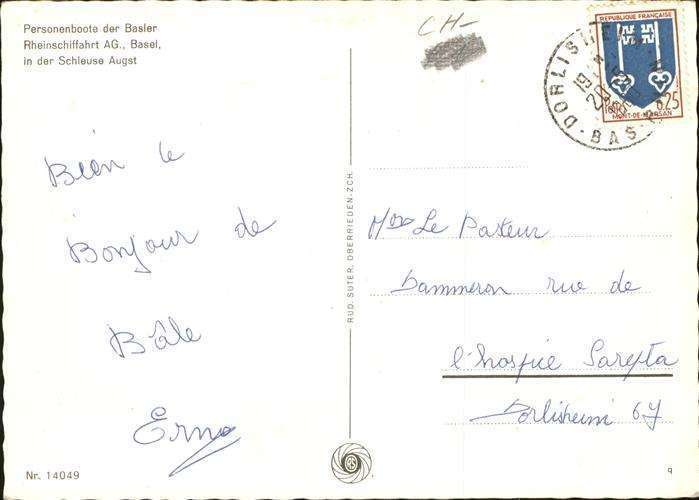 Personenboote der Basler
Rheinschiffahrt AG., Basel,
in der Schleuse Augst
CH-
REPUBLIQUE FRANÇAISE
0,25
MONT-DE-MARSAN
DORLISHEIM
BAS-RHIN
Bien le
Bonjour de
Bâle
Erna
RUD. SUTER, OBERRIEDEN-ZCH.
Le Pasteur
Dammeron rue de
l'hospice Sarepta
Dorlisheim 67
Nr. 14049
q